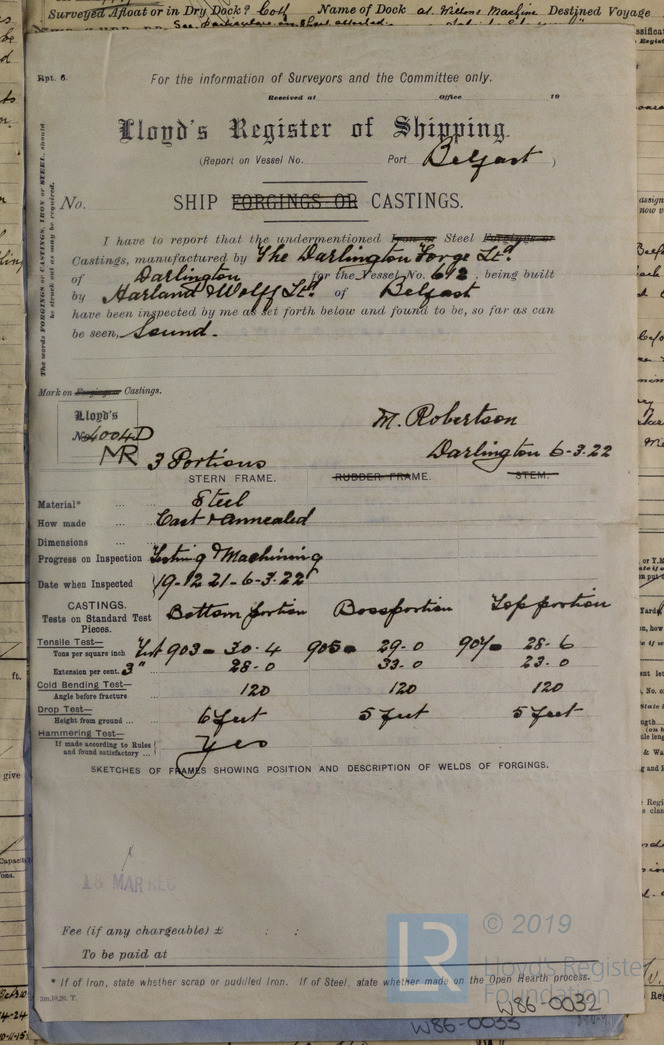 Surveyed Afloat or in Dry Dock? Name of Dock at Destined Voyage
Rpt. 6.
For the information of Surveyors and the Committee only.
Received at Office 19
Lloyd's Register of Shipping.
(Report on Vessel No. Port Belfast )
No. SHIP FORGINGS OR CASTINGS.
The words FORGINGS or CASTINGS, IRON or STEEL, should
be struck out as may be required.
I have to report that the undermentioned Iron or Steel Forgings or
Castings, manufactured by The Darlington Forge Ltd.
of Darlington for the Vessel No. 612, being built
by Harland & Wolff Ltd. of Belfast
have been inspected by me as set forth below and found to be, so far as can
be seen, Sound.
Mark on Forging or Castings.
Lloyd's
No 4004D
MR
M. Robertson
Darlington 6-3.22
3 Portions
STERN FRAME. RUDDER FRAME. STEM.
Material* ... Steel
How made ... Cast & annealed
Dimensions ...
Progress on Inspection Testing & Machining
Date when Inspected 19-12 21-6-3.22
CASTINGS.
Tests on Standard Test
Pieces.
Bottom portion Boss portion Top portion
Tensile Test—
Tons per square inch Test 903 = 30.4 905 = 29.0 907 = 28.6
Extension per cent. 3" ... 28.0 33.0 23.0
Cold Bending Test—
Angle before fracture 120 120 120
Drop Test—
Height from ground ... 6 feet 5 feet 5 feet
Hammering Test—
If made according to Rules
and found satisfactory ... Yes
SKETCHES OF FRAMES SHOWING POSITION AND DESCRIPTION OF WELDS OF FORGINGS.
18 MAR REC
Fee (if any chargeable) £ : :
To be paid at
* If of Iron, state whether scrap or puddled Iron. If of Steel, state whether made on the Open Hearth process.
© 2019
LR
Lloyd's Register
Foundation
W86-0032
W86-0033